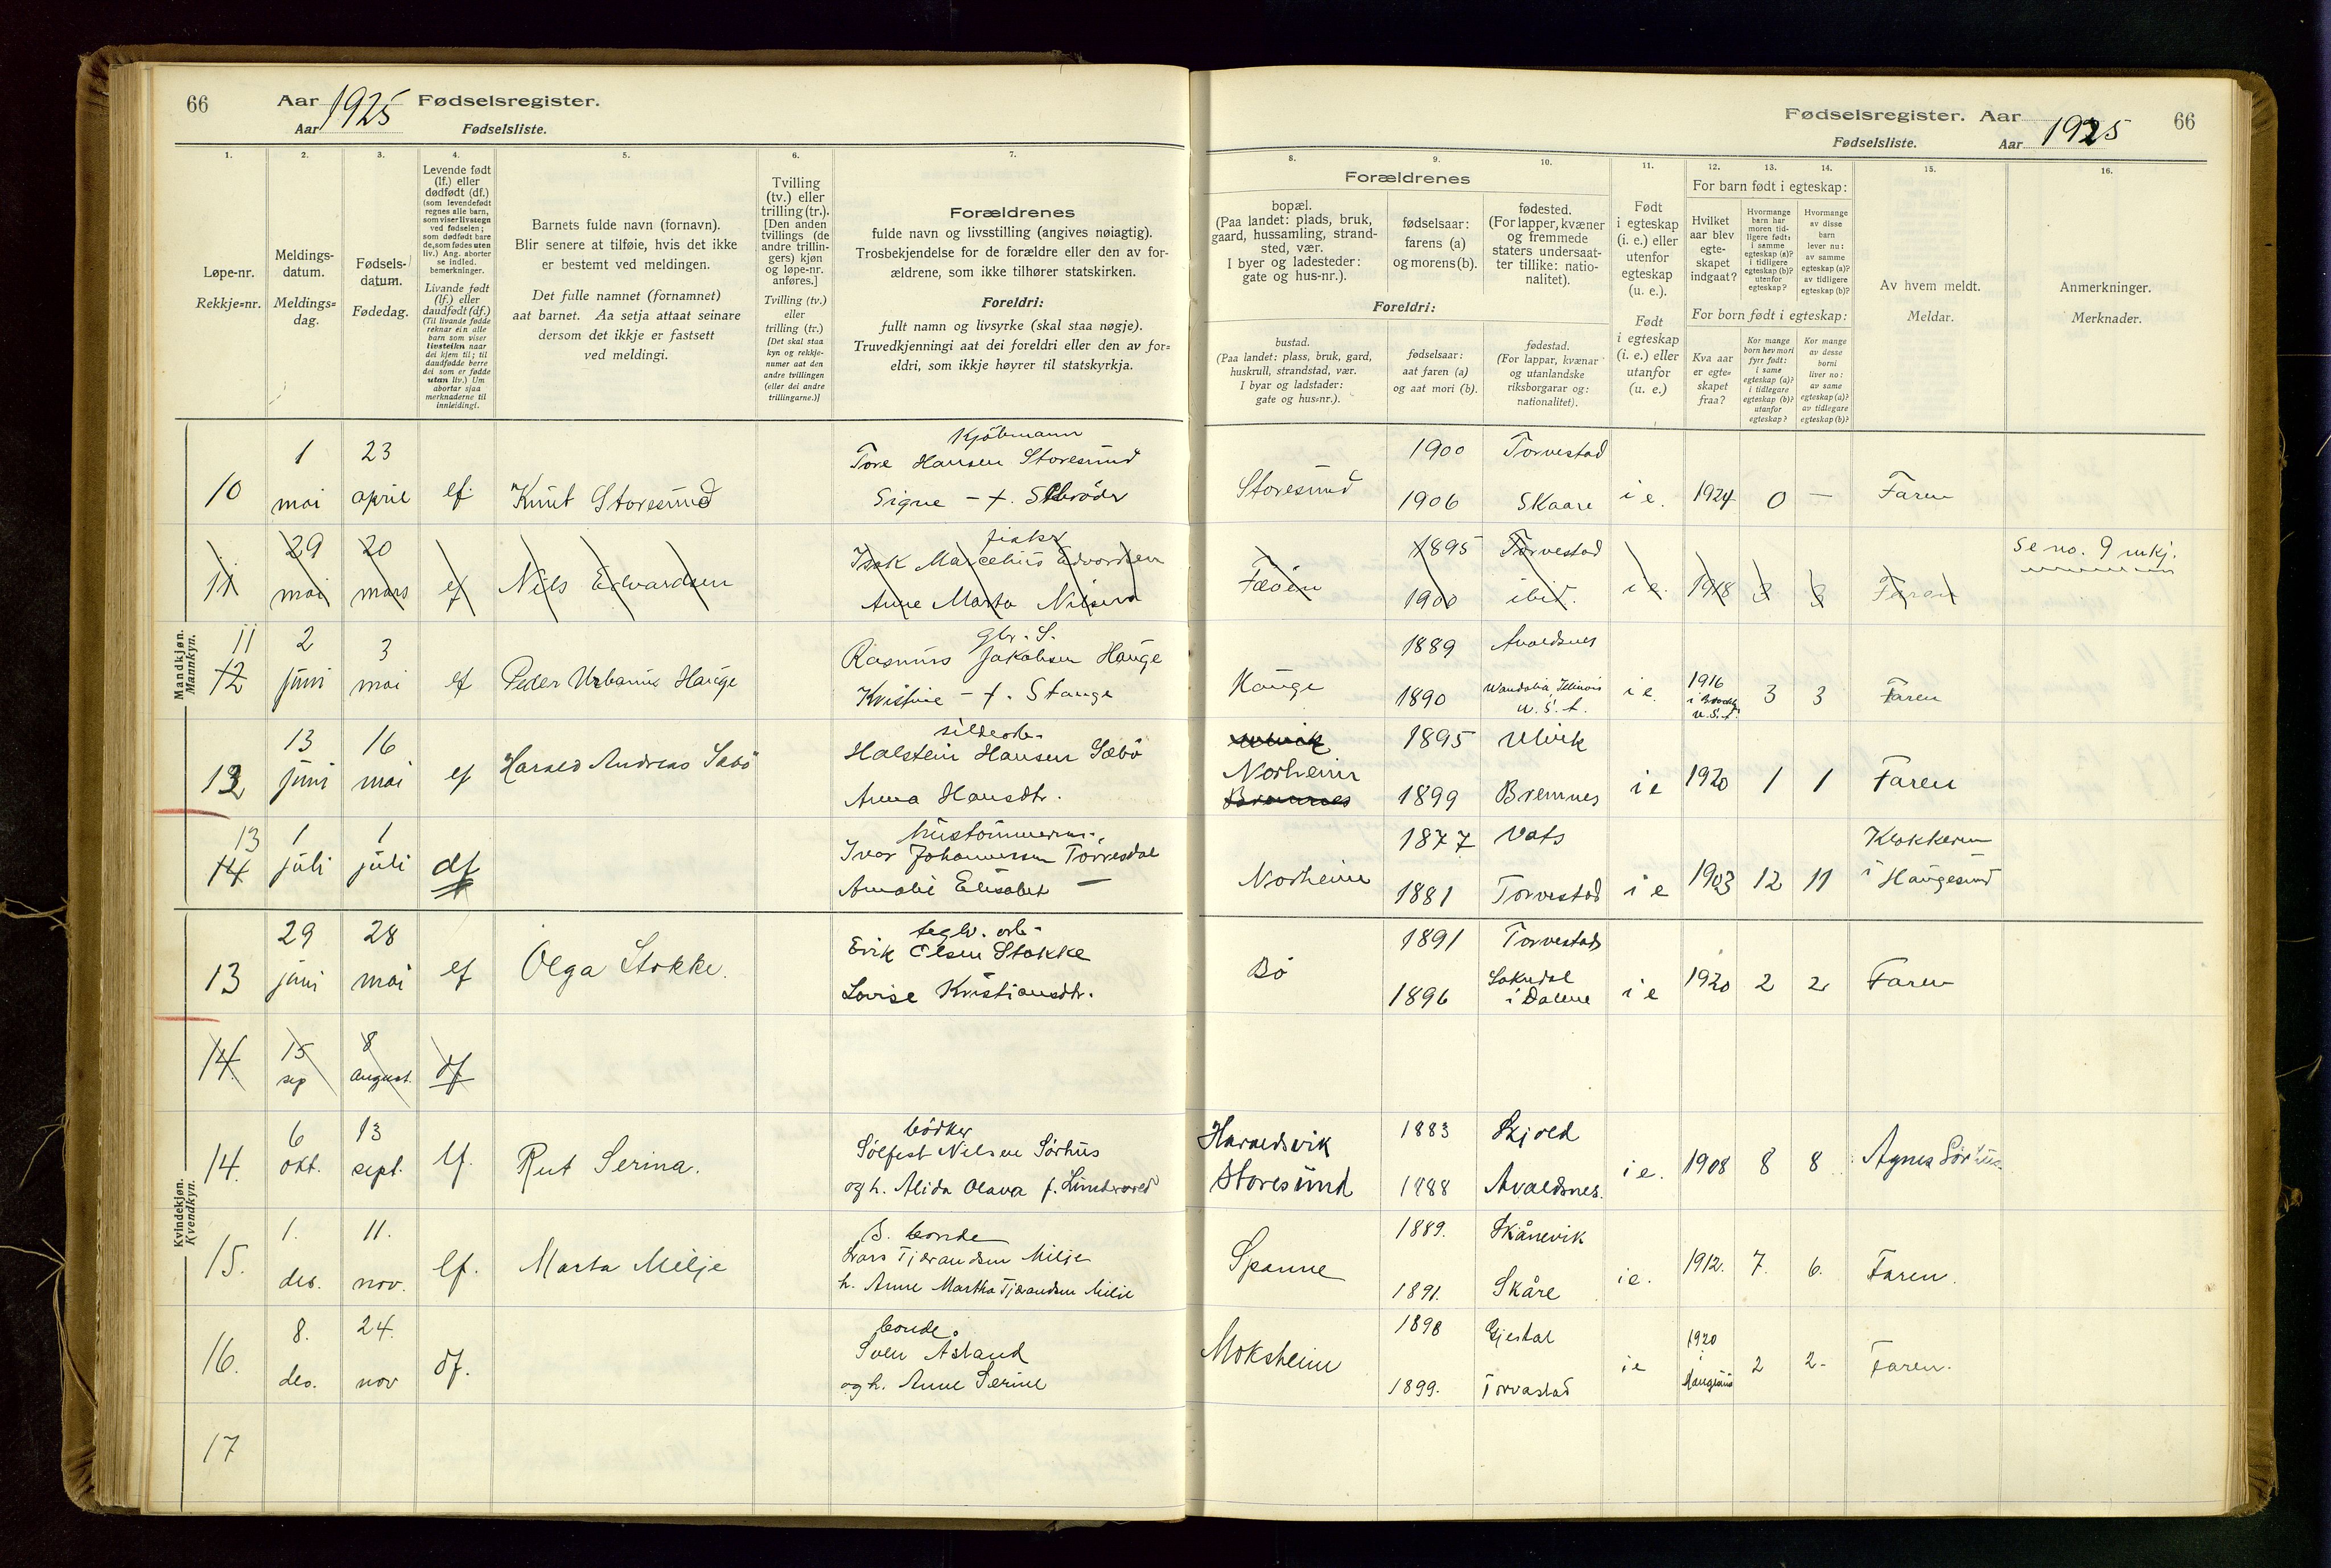 66 Aar 1925 Fødselsregister.
Aar Fødselsliste.
1. 2. 3. 4. 5. 6. 7.
Løpe-nr.
Rekkje-nr.
Meldings-
datum.
Meldings-
dag.
Fødsels-
datum.
Fødedag.
Levende født
(lf.) eller
dødfødt (df.)
(som levendefødt
regnes alle barn,
som viser livstegn
ved fødselen;
som dødfødt bare
de, som fødes uten
liv.) Ang. aborter
se indled.
bemerkninger.
Livande født
(lf.) eller
daudfødt (df.)
(Til livande fødde
reknar ein alle
barn som viser
livsteikn naar
dei kjem til; til
daudfødde berre
dei som er fødde
utan liv.) Um
abortar sjaa
merknaderne til
innleidingi.
Barnets fulde navn (fornavn).
Blir senere at tilføie, hvis det ikke
er bestemt ved meldingen.
Det fulle namnet (fornamnet)
aat barnet. Aa setja attaat seinare
dersom det ikkje er fastsett
ved meldingi.
Tvilling
(tv.) eller
trilling (tr.).
[Den anden
tvillings (de
andre trillin-
gers) kjøn
og løpe-nr.
anføres.]
Tvilling (tv.)
eller
trilling (tr.)
[Det skal staa
kyn og rekkje-
numer aat den
andre tvillingen
(eller dei andre
trillingarne.)]
Forældrenes
fulde navn og livsstilling (angives nøiagtig).
Trosbekjendelse for de forældre eller den av for-
ældrene, som ikke tilhører statskirken.
Foreldri:
fullt namn og livsyrke (skal staa nøgje).
Truvedkjenningi aat dei foreldri eller den av for-
eldri, som ikkje høyrer til statskyrkja.
Mandkjøn.
Mannkyn.
10 1 mai 23 april lf. Knut Storesund
Kjøbmann
Tore Hansen Storesund
Signe – f. Schrøder
11 29 mai 20 mars lf Nils Edvardsen
fisker
Isak Marcelius Edvardsen
Anne Marta Nilsen
11
12 2 juni 3 mai lf Peder Urbanus Hauge
gbr. S.
Rasmus Jakobsen Hauge
Kristine – f. Stange
12 13 juni 16 mai lf Harald Andreas Sæbø
Halstein Hansen Sæbø
Anna Hansdtr.
13
14 1 juli 1 juli df
Ivar Johannessen Torresdal
Amalie Elisabet –
Kvindekjøn.
Kvendkyn.
13 29 juni 28 mai lf Olga Stokke.
teglv. arb.
Erik Olsen Stokke
Lovise Kristiansdtr.
14. 15 sep 8 august. df
14. 6 okt. 13 sept. lf. Rut Serina.
bødker
Sølfest Nilsen Sørhus
og h. Alida Olava f.
15. 1. des. 11. nov. lf. Marta Milje
S. bonde
Lars Tjerandsen Milje
h. Anne Martha Tjerandsen Milje
16. 8. des. 24. nov df.
bonde.
Sven Asland
og h. Anne Serine
17
Fødselsregister. Aar 1925 66
Fødselsliste. Aar
8. 9. 10. 11. 12. 13. 14. 15. 16.
Forældrenes
bopæl.
(Paa landet: plads, bruk,
gaard, hussamling, strand-
sted, vær.
I byer og ladesteder:
gate og hus-nr.).
fødselsaar:
farens (a)
og morens (b).
fødested.
(For lapper, kvæner
og fremmede
staters undersaat-
ter tillike: natio-
nalitet).
Foreldri:
bustad.
(Paa landet: plass, bruk, gard,
huskrull, strandstad, vær.
I byar og ladstader:
gate og hus-nr.).
fødselsaar:
aat faren (a)
og aat mori (b).
fødestad.
(For lappar, kvænar
og utanlandske
riksborgarar og:
nationalitet).
Født
i egteskap
(i. e.) eller
utenfor
egteskap
(u. e.).
Født
i egteskap
(i. e.) eller
utanfor
(u. e.)
For barn født i egteskap:
Hvilket
aar blev
egte-
skapet
indgaat?
Hvormange
barn har
moren tid-
ligere født:
i samme
egteskap (a)?
i tidligere
egteskap (b)?
utenfor
egteskap?
Hvormange
av disse
barn
lever nu:
av samme
egteskap (a)?
av tidligere
egteskap (b)?
For born født i egteskap:
Kva aar
er egte-
skapet
fraa?
Kor mange
born hev mori
fyrr født:
i same
egteskap (a)?
i tidlegare
egteskap (b)?
utanfor
egteskap?
Kor mange
av desse
borni
liver no:
av same
egteskap (a)?
av tidlegare
egteskap (b)?
Av hvem meldt.
Meldar.
Anmerkninger.
Merknader.
Storesund 1900 Torvestad
1906 Skaare i e. 1924 0 – Faren
Fæøen 1895 Torvestad
1900 ibid. i e. 1918 3 3 Faren
Se no. 9 mkj.
Hauge 1889 Avaldsnes
1890 Wandalia, Illinois
U. S. A. i e. 1916 3 3 Faren
Norheim
Bremnes
1895 Ulvik
1899 Bremnes i e 1920 1 1 Faren
Norheim 1877 Vats
1881 Torvestad i e 1903 12 11 Klokkeren
i Haugesund
Bø 1891 Torvestad
1896 Sokndal
i Dalene i e 1920 2 2 Faren
Haraldsvik
Storesund
1883 Skjold
1888 Avaldsnes. i e. 1908 8 8 Agnes Sørhus.
Spanne 1889. Skånevik
1891. Skåre i e. 1912. 7. 6. Faren.
Moksheim 1898 Gjestal
1899. Torvastad i e 1920
i
Haugesund 2 2- Faren.